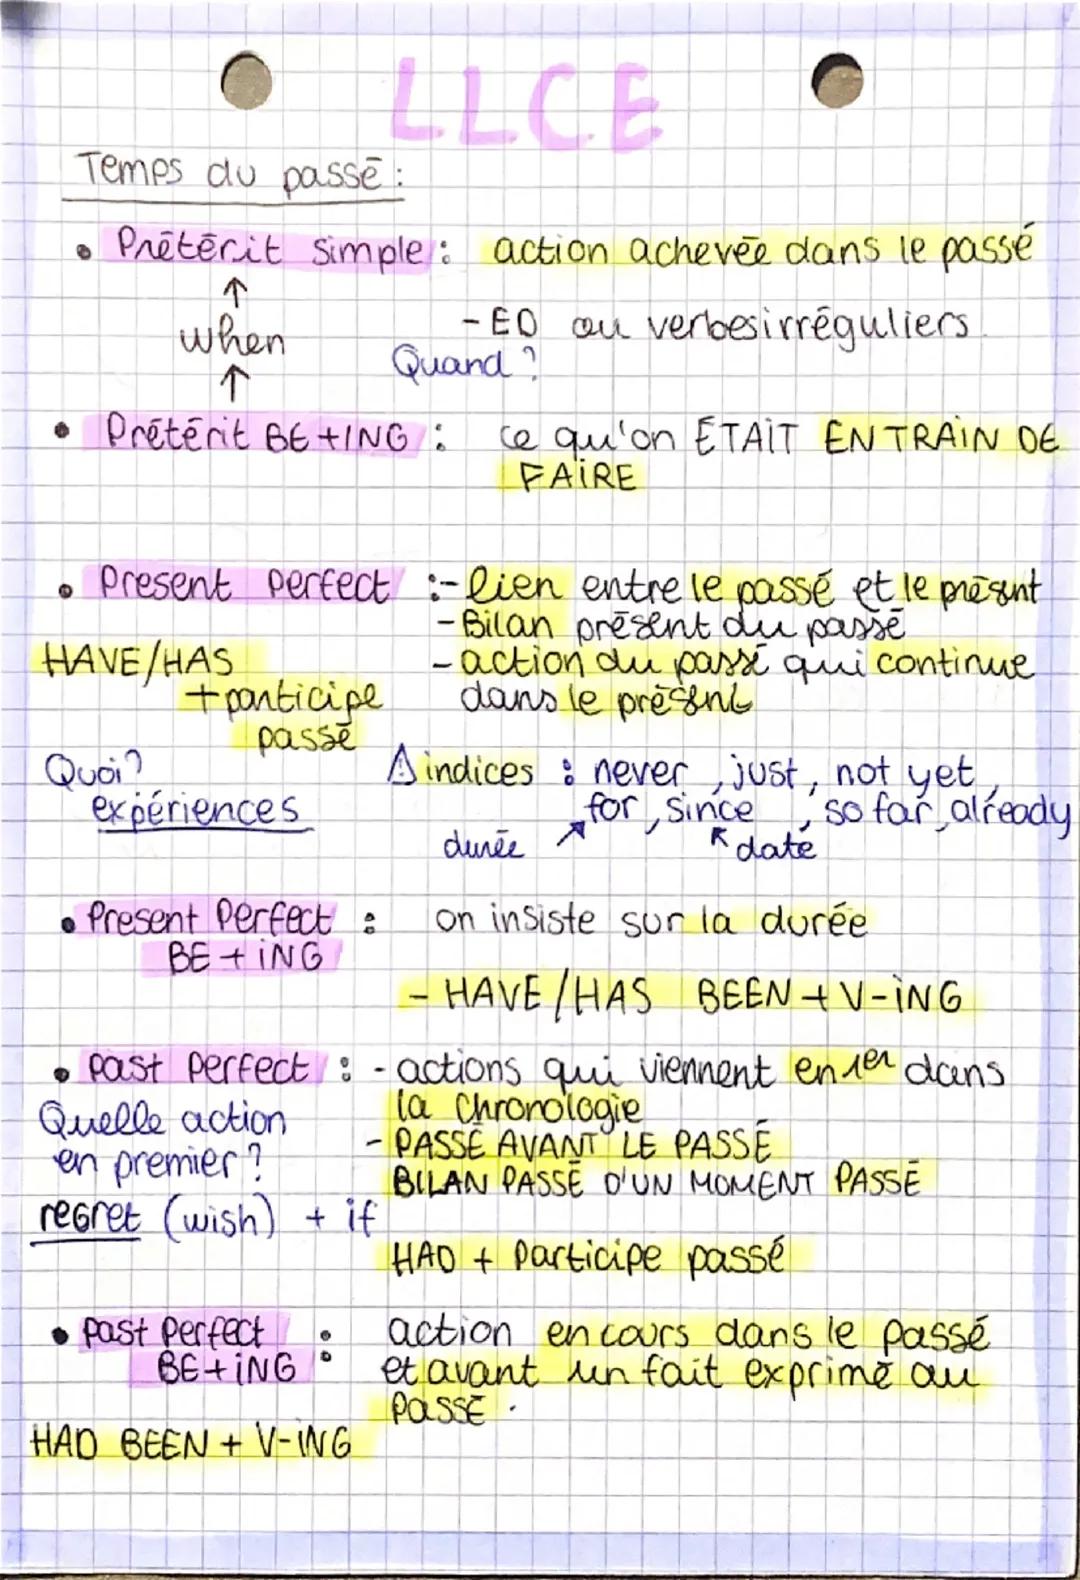 LLCE
Temps du passé :
• Prétérit simple : action achevée dans le passé
↑
when
- ED ou verbes irréguliers.
Quand ?
↑
• Prétérit BE +ING : ce qu'on ÉTAIT EN TRAIN DE
FAIRE
• Present perfect :- lien entre le passé et le présent
- Bilan présent du passé
HAVE/HAS
+ participe
passé
- action du passé qui continue
dans le présent
Quoi ?
expériences
⚠ indices : never, just, not yet,
for, since, so far, already
durée ↗ ↖ date
• Present Perfect : on insiste sur la durée
BE + ING
- HAVE/HAS BEEN + V-ING
• past perfect : - actions qui viennent en 1er dans
la chronologie
Quelle action
en premier ?
- PASSÉ AVANT LE PASSÉ
BILAN PASSÉ D'UN MOMENT PASSÉ
regret (wish) + if
HAD + Participe passé
• past perfect : action en cours dans le passé
BE + ING : et avant un fait exprimé au
passé.
HAD BEEN + V-ING